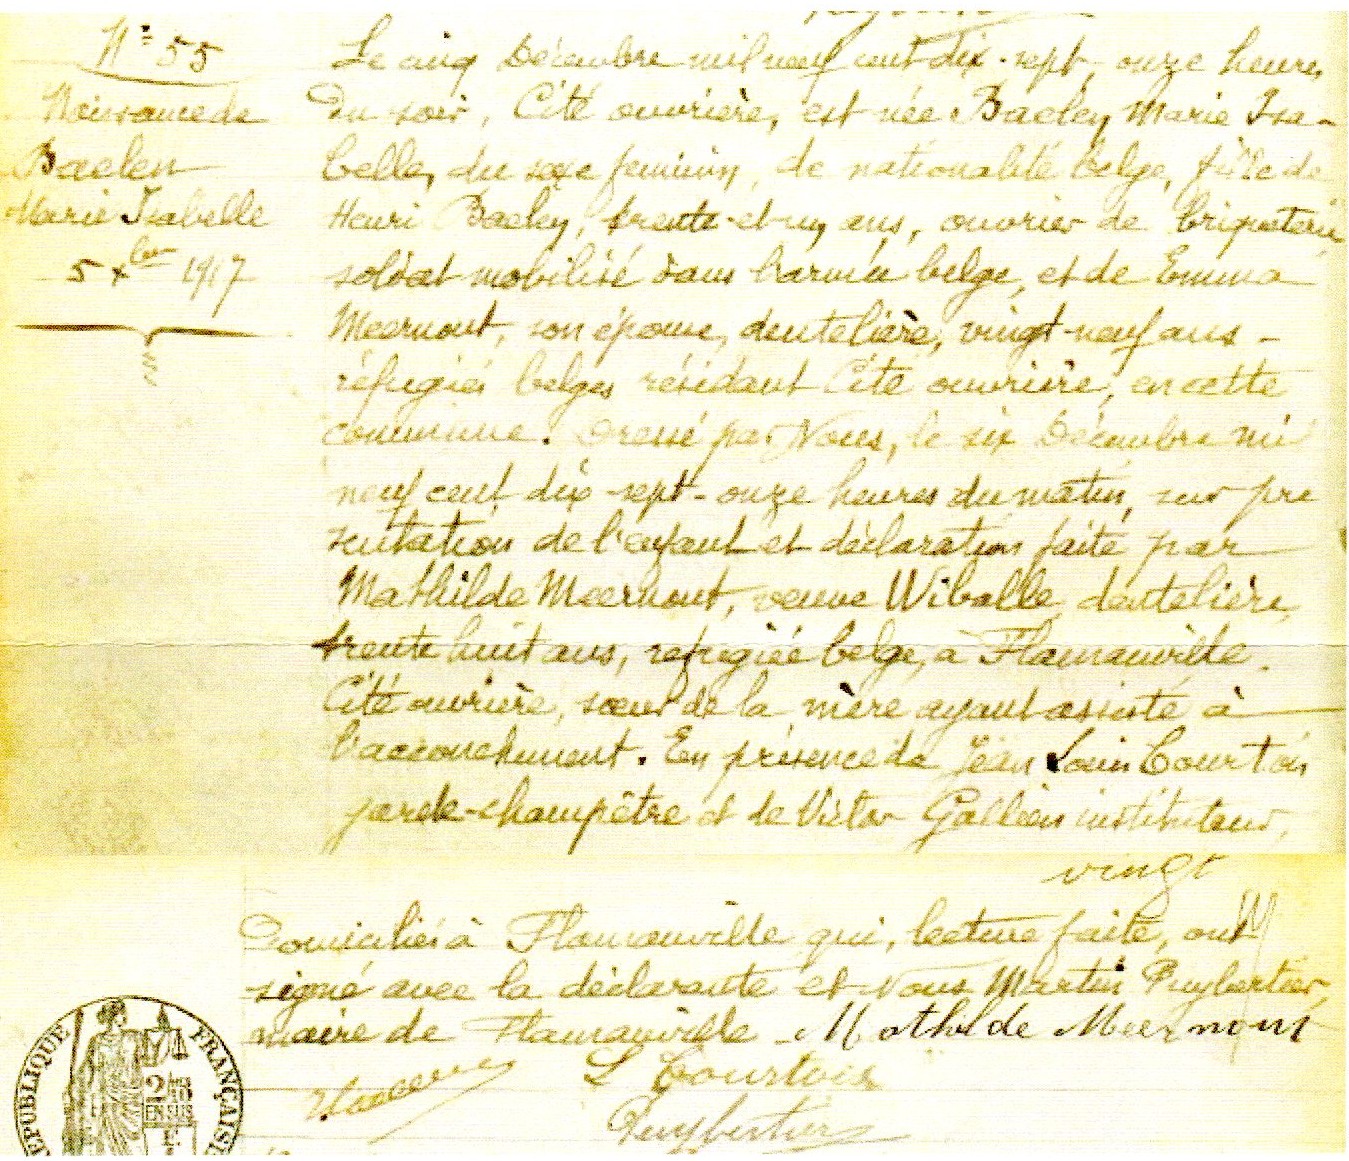 N° 55
Naissance de
Baelen
Marie Isabelle
5 Xbre 1917
Le cinq Décembre mil neuf cent dix-sept, onze heures
du soir, Cité ouvrière, est née Baelen, Marie Isa-
belle, du sexe féminin, de nationalité belge, fille de
Henri Baelen, trente-et-un ans, ouvrier de briqueterie
soldat mobilisé dans l'armée belge, et de Emma
Meernout, son épouse, dentelière, vingt-neuf ans -
réfugiés belges résidant Cité ouvrière, en cette
commune. Dressé par Nous, le six Décembre mil
neuf cent dix-sept - onze heures du matin, sur pré
sentation de l'enfant et déclaration faite par
Mathilde Meernout, veuve Wiballe, dentelière,
trente huit ans, refugiée belge, à Flamanville.
Cité ouvrière, sœur de la mère ayant assisté à
l'accouchement. En présence de Jean Louis Courtois
garde-champêtre et de Victor Gallien instituteur,
vingt
Domiciliés à Flamanville qui, lecture faite, ont
signé avec la déclarante et Nous Martin Puybertier,
maire de Flamanville - Mathilde Meernout
L Courtois
Puybertier
RÉPUBLIQUE FRANÇAISE
2
EN SUS